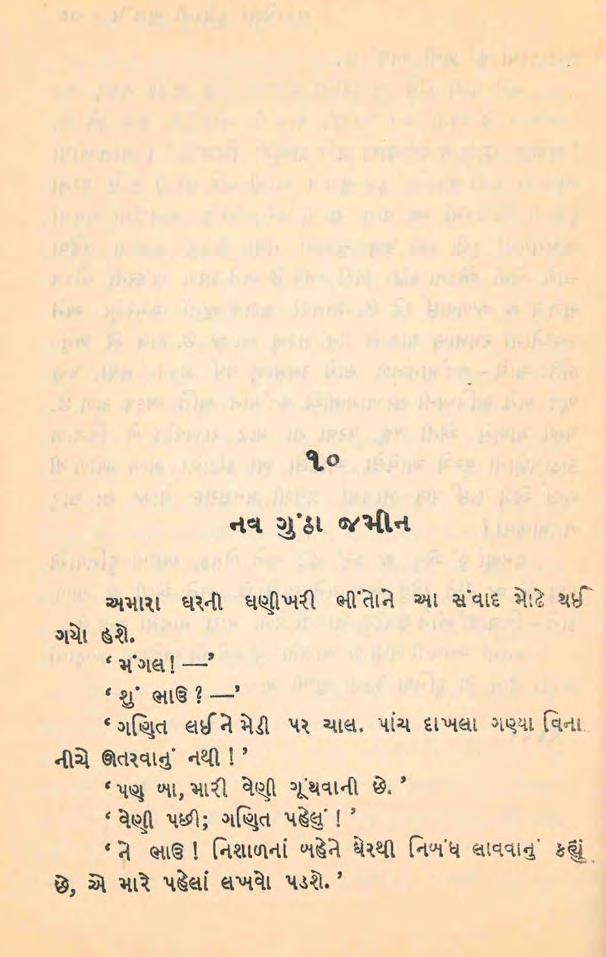 ૧૦
નવ ગુંઠા જમીન
અમારા ઘરની ઘણીખરી ભીંતોને આ સંવાદ મોઢે થઈ
ગયો હશે.
‘ મંગલ! —’
‘ શું ભાઉ ? —’
‘ ગણિત લઈ ને મેડી પર ચાલ. પાંચ દાખલા ગણ્યા વિના
નીચે ઊતરવાનું નથી ! ’
‘ પણ બા, મારી વેણી ગૂંથવાની છે. ’
‘ વેણી પછી; ગણિત પહેલું ! ’
‘ ને ભાઉ ! નિશાળનાં બહેને ઘેરથી નિબંધ લાવવાનું કહ્યું
છે, એ મારે પહેલાં લખવો પડશે. ’